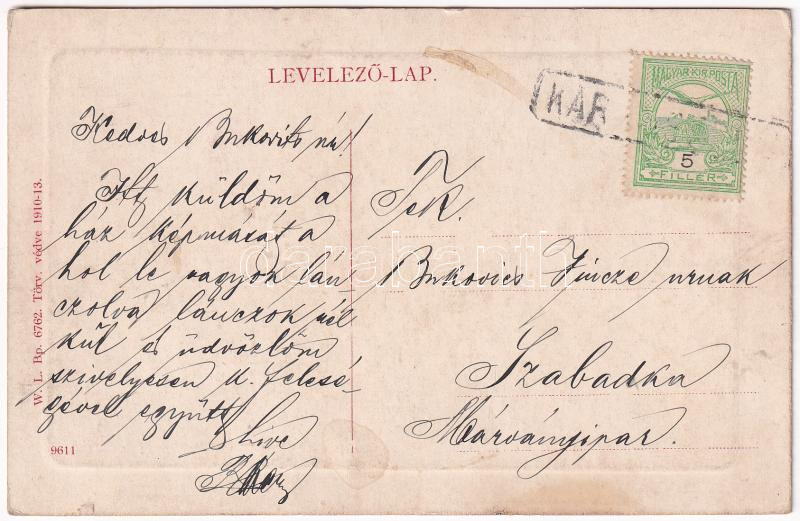 LEVELEZŐ-LAP.
KAR
MAGYAR·KIR·POSTA
5
FILLÉR
Kedves Bukovits úr!
Itt küldöm a
ház képmását a
hol le vagyok lán
czolva lánczok nél
kül és üdvözlöm
szivelyesen k. felesé-
gével együtt
hive
Tek.
Bukovics Vincze urnak
Szabadka
Márványipar.
W. L. Bp. 6762. Törv. védve 1910-13.
9611
darabanth